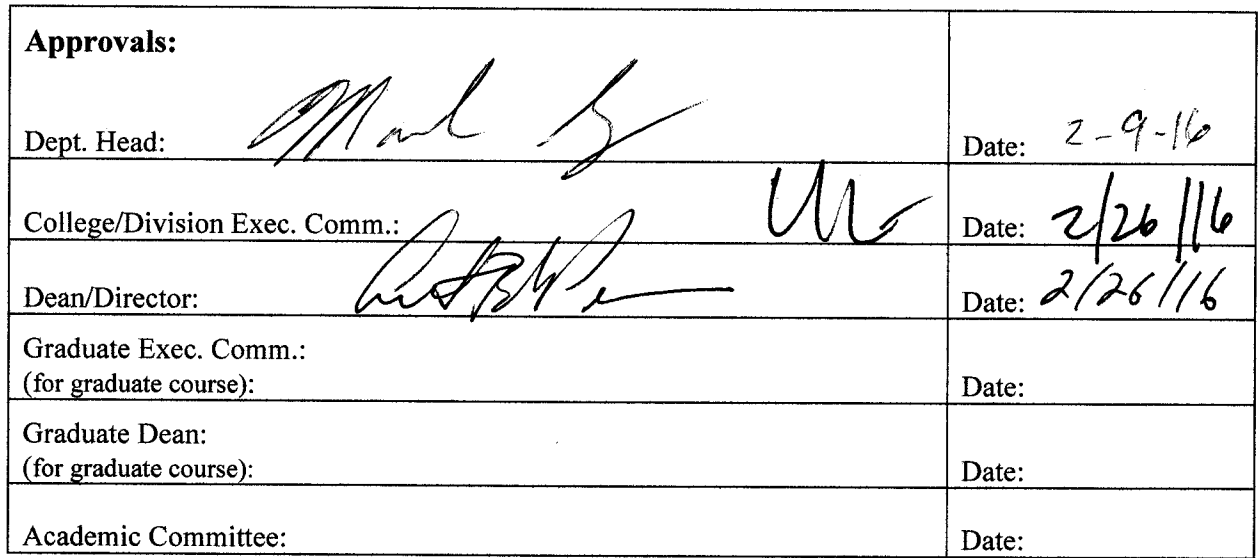 Approvals:
Dept. Head: Date: 2-9-16
College/Division Exec. Comm.: Date: 2/26/16
Dean/Director: Date: 2/26/16
Graduate Exec. Comm.:
(for graduate course): Date:
Graduate Dean:
(for graduate course): Date:
Academic Committee: Date: